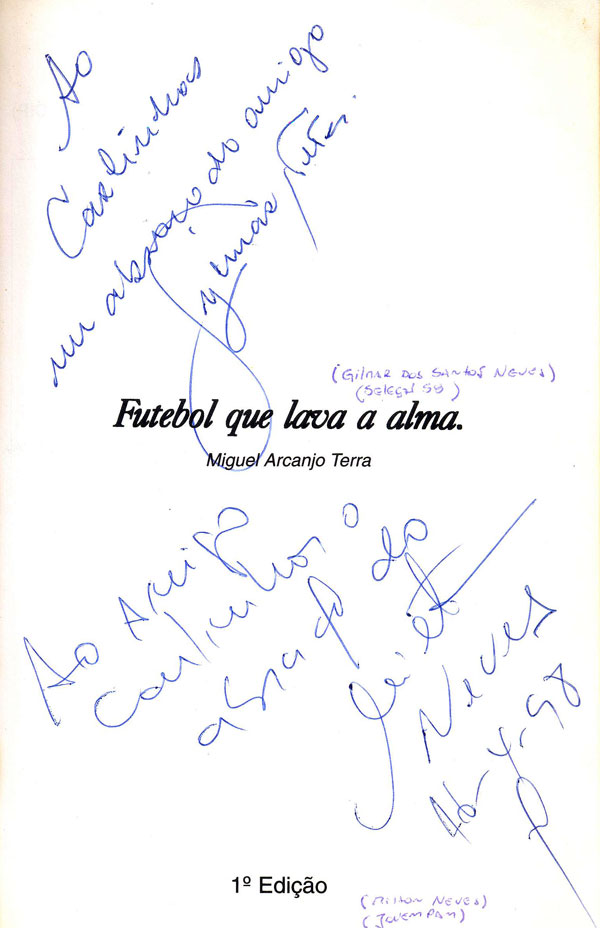 Ao
Carlinhos
um abraço do amigo
Gylmar
(Gilmar dos Santos Neves)
(Seleção 58)
Futebol que lava a alma.
Miguel Arcanjo Terra
Ao Amigo
Carlinhos o
abraço do
Milton
Neves
1º Edição
(Milton Neves)
(Jovem Pam)